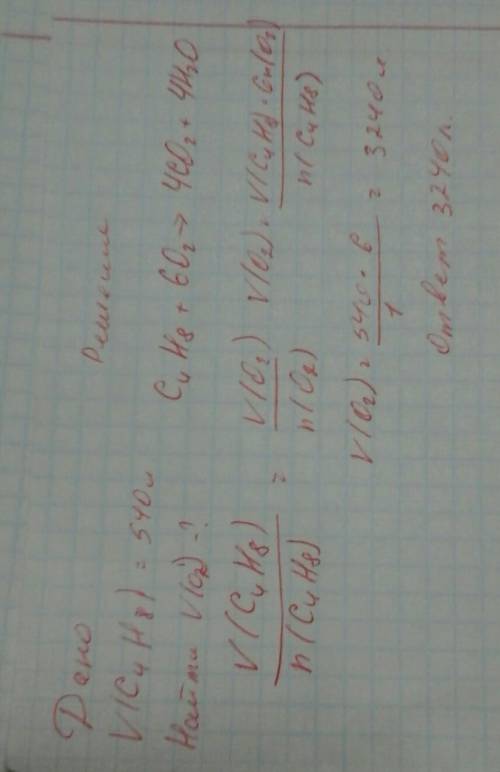 Дано
V(C₄H₈) = 540 л
Найти V(O₂) - ?
Решение
C₄H₈ + 6O₂ → 4CO₂ + 4H₂O
V(C₄H₈) / n(C₄H₈) = V(O₂) / n(O₂) V(O₂) = V(C₄H₈ · n(O₂) / n(C₄H₈)
V(O₂) = 540 · 6 / 1 = 3240 л
Ответ 3240 л.